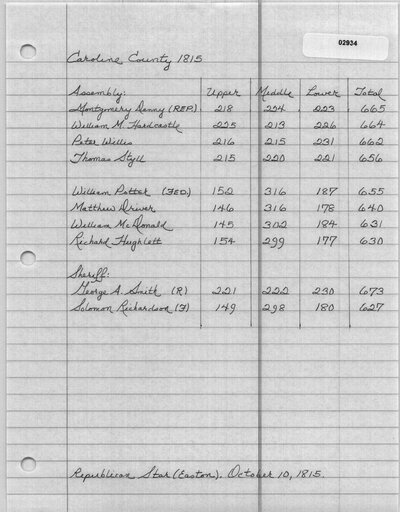 02934
Caroline County 1815
Assembly: Upper Middle Lower Total
Montgomery Denny (REP.) 218 224 223 665
William M. Hardcastle 225 213 226 664
Peter Willis 216 215 231 662
Thomas Styll 215 220 221 656
William Potter (FED.) 152 316 187 655
Matthew Driver 146 316 178 640
William McDonald 145 302 184 631
Richard Hughlett 154 299 177 630
Sheriff:
George A. Smith (R) 221 222 230 673
Solomon Richardson (F) 149 298 180 627
Republican Star (Easton). October 10, 1815.